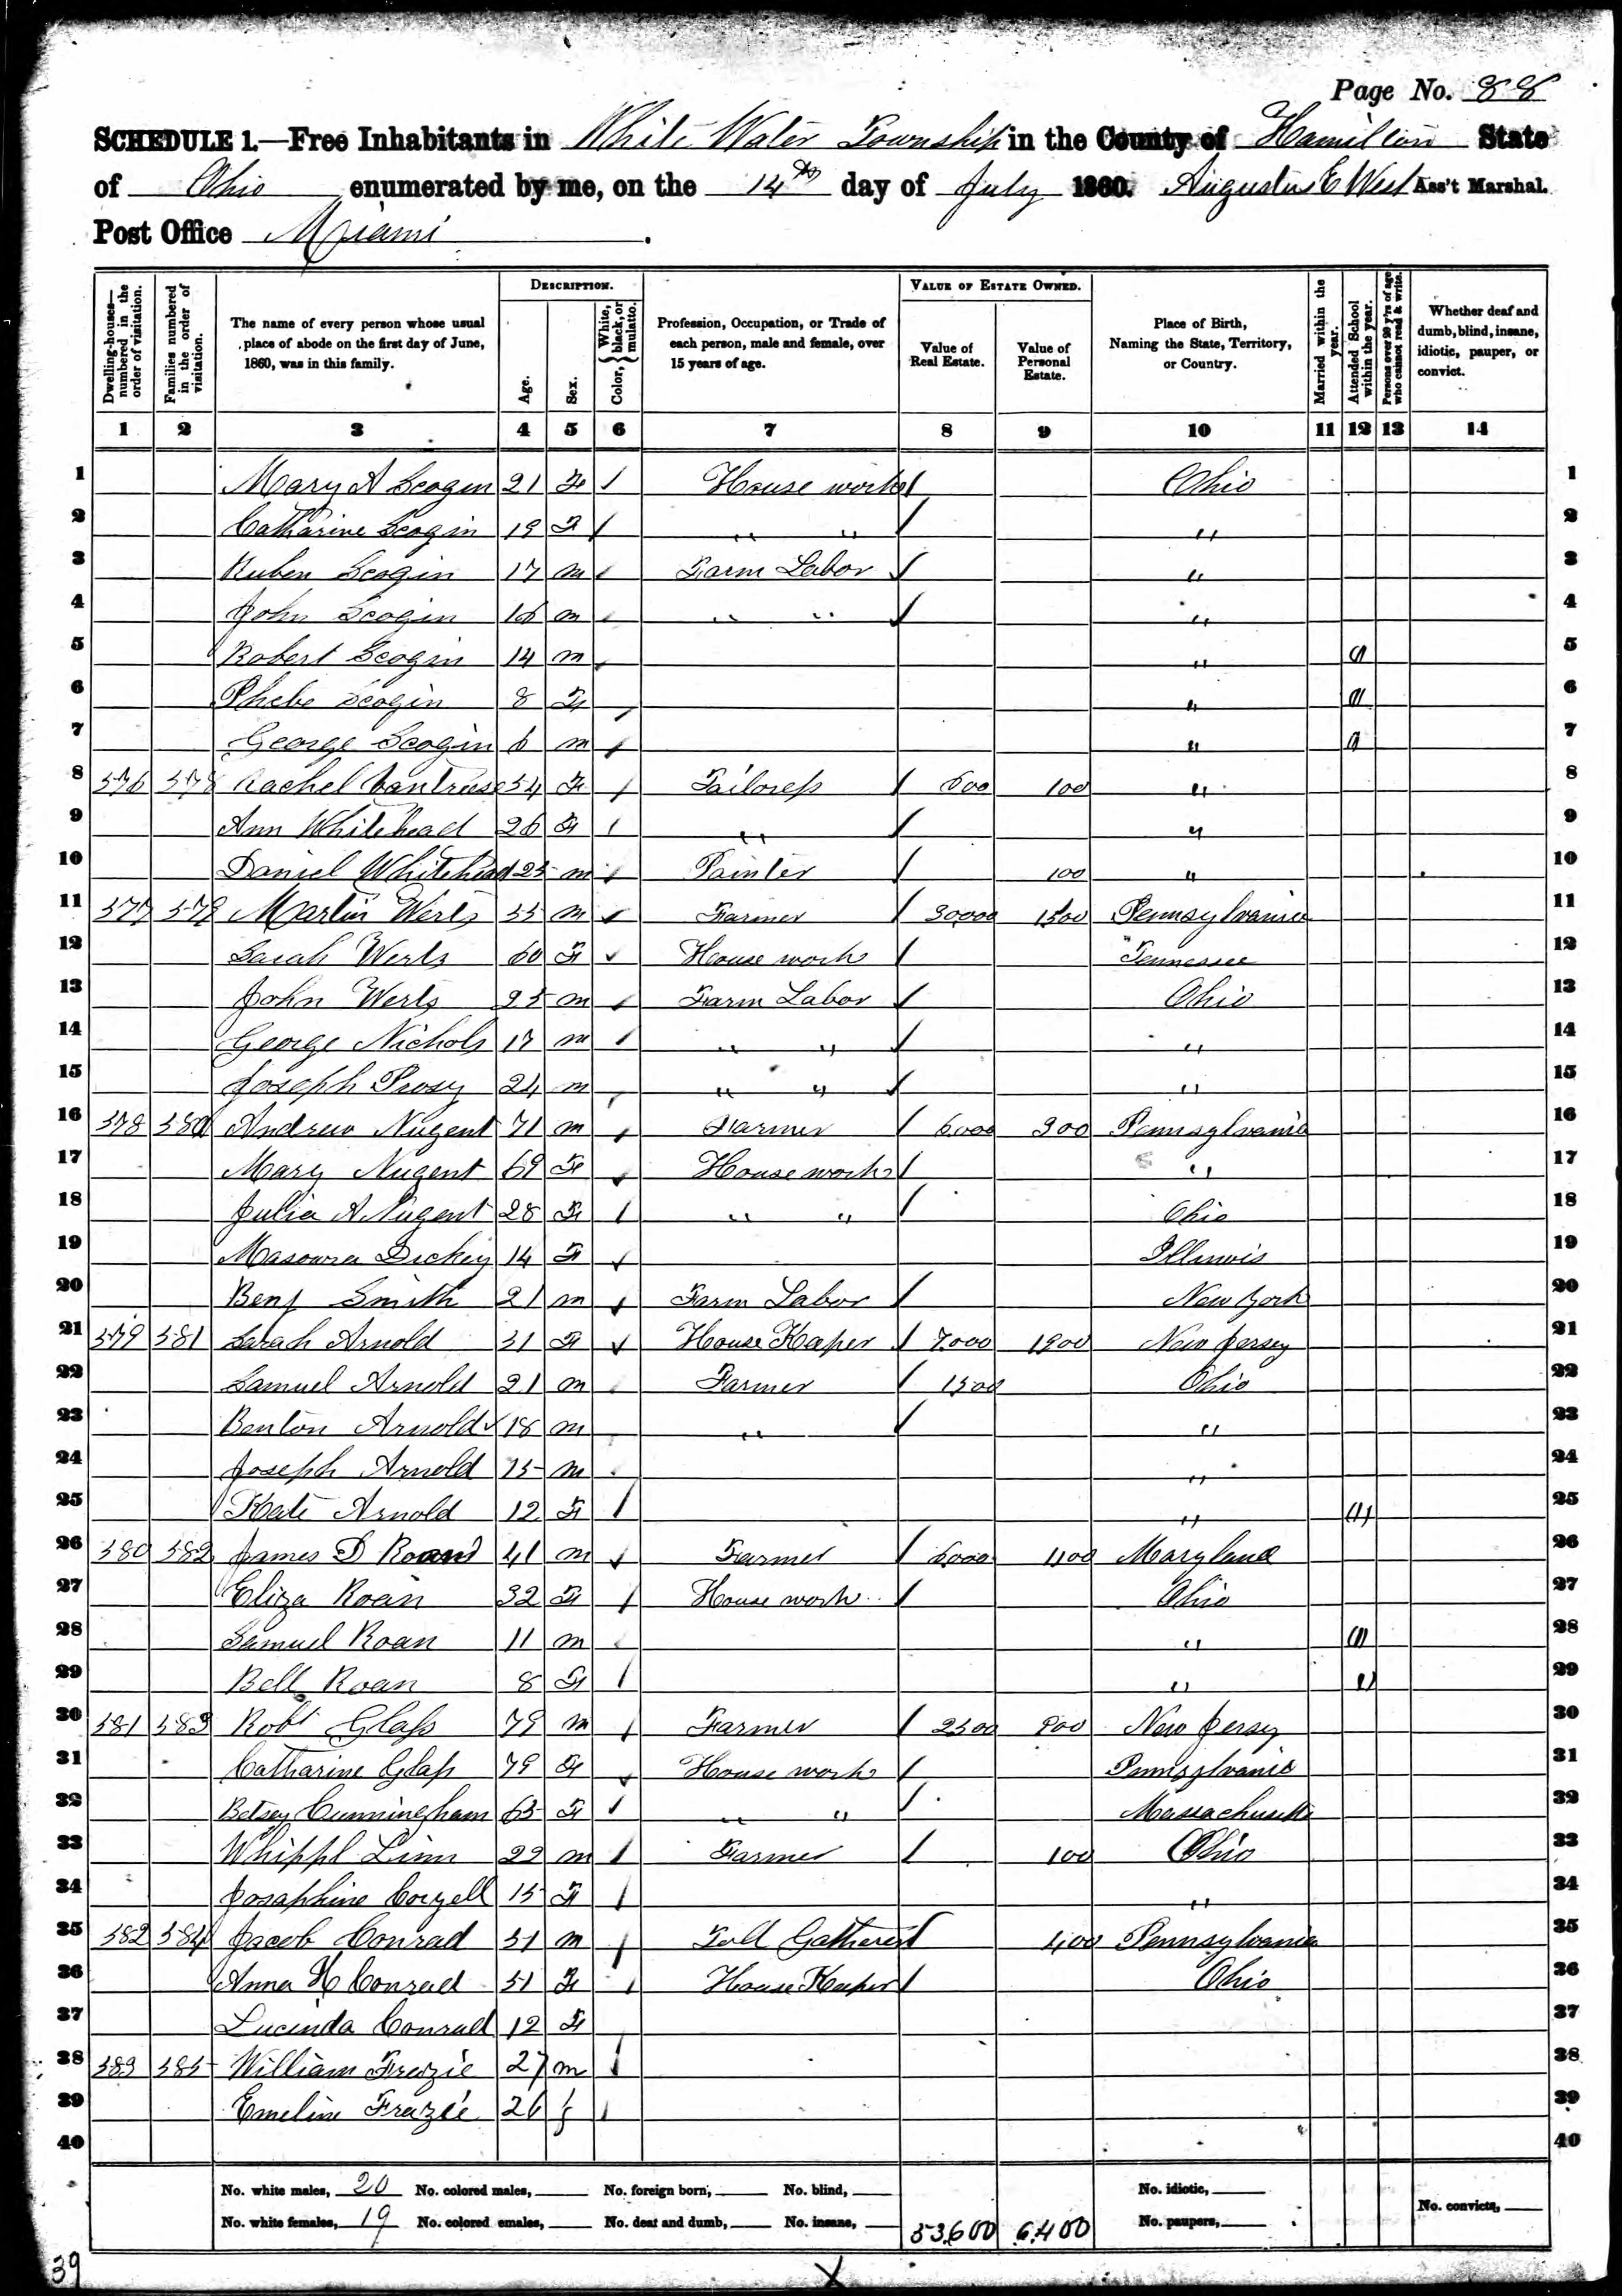 Page No. 88
SCHEDULE 1.—Free Inhabitants in White Water Township in the County of Hamilton State
of Ohio enumerated by me, on the 14th day of July 1860. Augustus E West Ass't Marshal.
Post Office Miami.
Dwelling-houses—numbered in the order of visitation.
Families numbered in the order of visitation.
The name of every person whose usual place of abode on the first day of June, 1860, was in this family.
DESCRIPTION.
Age.
Sex.
Color, White, black, or mulatto.
Profession, Occupation, or Trade of each person, male and female, over 15 years of age.
VALUE OF ESTATE OWNED.
Value of Real Estate.
Value of Personal Estate.
Place of Birth, Naming the State, Territory, or Country.
Married within the year.
Attended School within the year.
Persons over 20 y'rs of age who cannot read & write.
Whether deaf and dumb, blind, insane, idiotic, pauper, or convict.
1 2 3 4 5 6 7 8 9 10 11 12 13 14
1 Mary A Scogin 21 F / House work / Ohio 1
2 Catharine Scogin 19 F / " " / " 2
3 Ruben Scogin 17 m / Farm Labor / " 3
4 John Scogin 16 m / " " / " 4
5 Robert Scogin 14 m / " / 5
6 Phebe Scogin 8 F / " / 6
7 George Scogin 6 m / " / 7
8 576 578 Rachel Vantrese 54 F / Tailoress / 600 100 " 8
9 Ann Whitehead 26 F / " / " 9
10 Daniel Whitehead 25 m / Painter / 100 " 10
11 577 579 Martin Werts 55 m / Farmer / 30,000 1500 Pennsylvania 11
12 Sarah Werts 60 F / House work / Tennessee 12
13 John Werts 25 m / Farm Labor / Ohio 13
14 George Nichols 17 m / " " / " 14
15 Joseph 24 m / " " / " 15
16 578 580 Andrew Nugent 71 m / Farmer / 6,000 300 Pennsylvania 16
17 Mary Nugent 69 F / House work / " 17
18 Julia A Nugent 28 F / " " / Ohio 18
19 Dickey 14 F / Illinois 19
20 Benj Smith 21 m / Farm Labor / New York 20
21 579 581 Sarah Arnold 51 F / House Keeper / 7,000 1900 New Jersey 21
22 Samuel Arnold 21 m / Farmer / 1500 Ohio 22
23 Benton Arnold 18 m " / " 23
24 Joseph Arnold 15 m " 24
25 Kate Arnold 12 F / " / 25
26 580 582 James D Roan 41 m / Farmer / 6,000 400 Maryland 26
27 Eliza Roan 32 F / House work / Ohio 27
28 Samuel Roan 11 m / " / 28
29 Bell Roan 8 F / " / 29
30 581 583 Robt Glass 79 m / Farmer / 2500 800 New Jersey 30
31 Catharine Glass 79 F / House work / Pennsylvania 31
32 Betsey Cunningham 65 F / " " / Massachusetts 32
33 Whippl Linn 22 m / Farmer / 100 Ohio 33
34 Josaphine Coryell 15 F / " 34
35 582 584 Jacob Conrad 51 m / Toll Gatherer / 400 Pennsylvania 35
36 Anna H Conrad 51 F / House Keeper / Ohio 36
37 Lucinda Conrad 12 F 37
38 583 585 William Frazie 27 m / 38
39 Emeline Frazie 26 f / 39
40 40
No. white males, 20 No. colored males, No. foreign born, No. blind, No. idiotic,
No. white females, 19 No. colored emales, No. deaf and dumb, No. insane, 53,600 6,400 No. paupers, No. convicts,
39 X